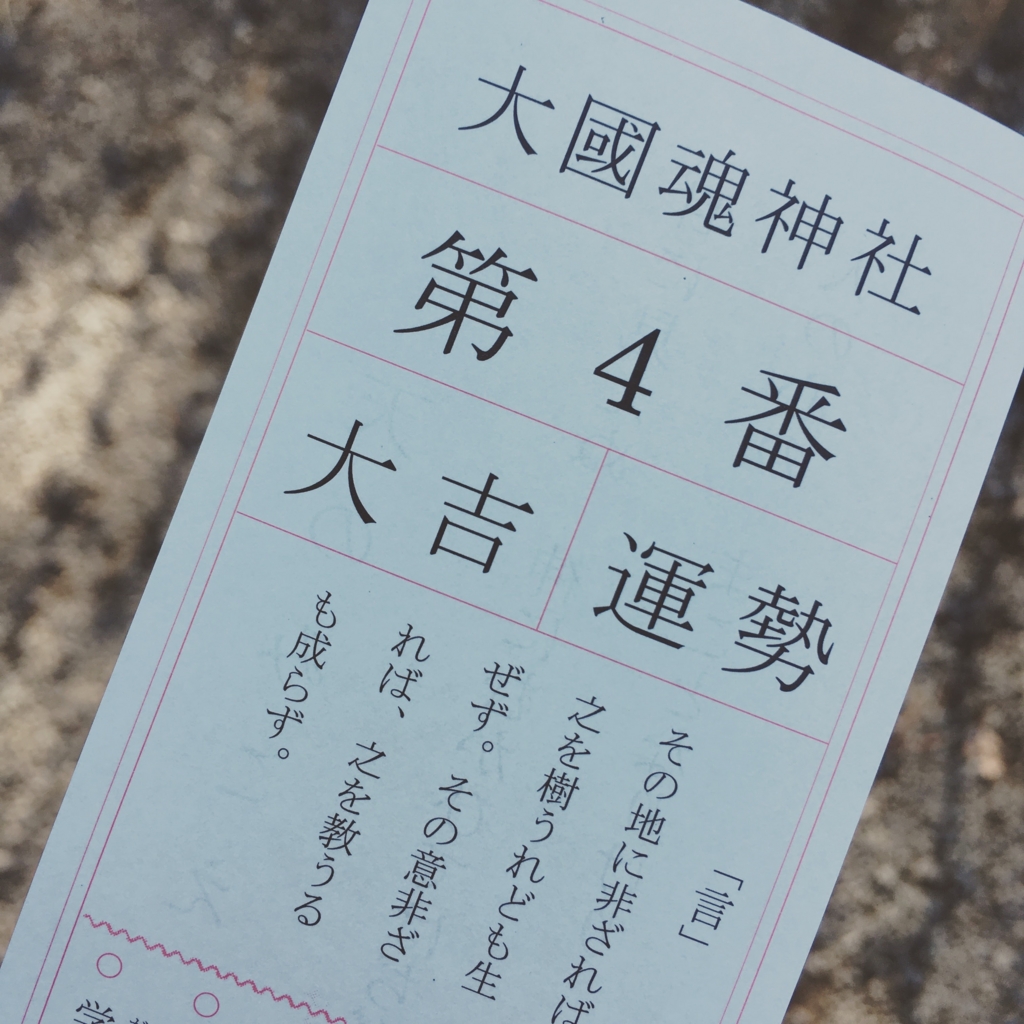 大國魂神社
第4番
大吉 運勢
「言」
その地に非ざれば
之を樹うれども生
ぜず。その意非ざ
れば、之を教うる
も成らず。
○ ○
学